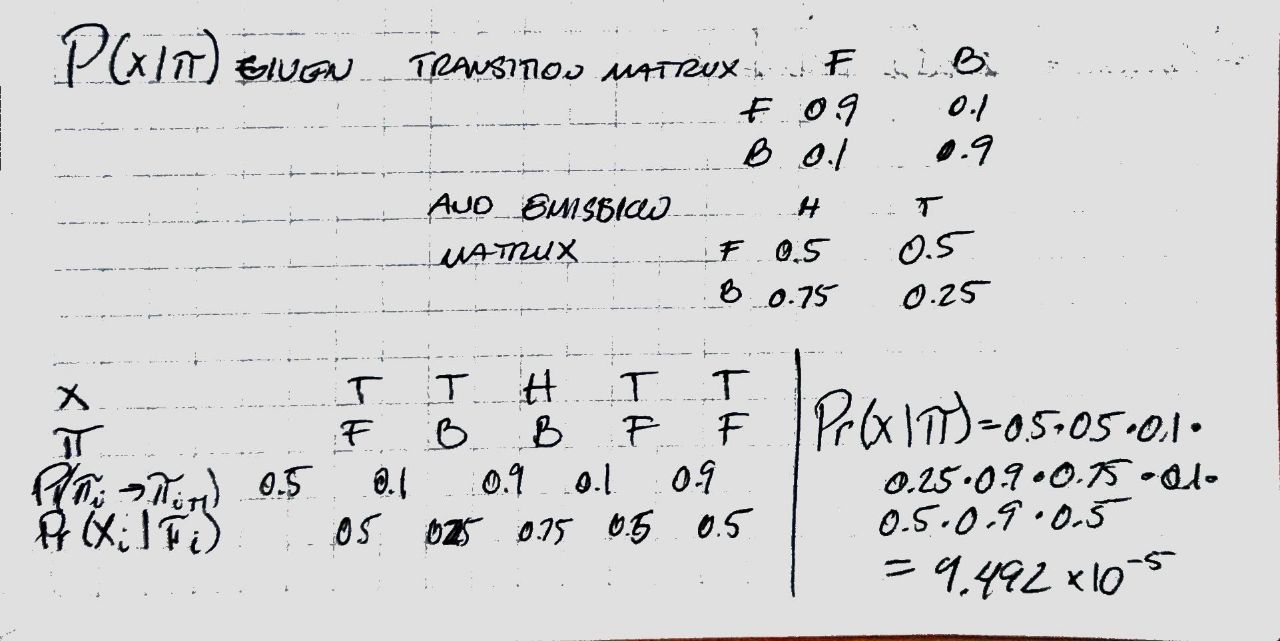 P(x|π) GIVEN TRANSITION MATRIX F B
F 0.9 0.1
B 0.1 0.9
AND EMISSION H T
MATRIX F 0.5 0.5
B 0.75 0.25
X T T H T T
π F B B F F
P(πi → πi+1) 0.5 0.1 0.9 0.1 0.9
Pr(xi|πi) 0.5 0.25 0.75 0.5 0.5
Pr(x|π) = 0.5·05·0.1·
0.25·0.9·0.75·0.1·
0.5·0.9·0.5
= 9.492 x10⁻⁵